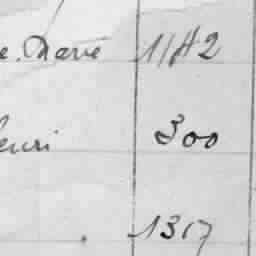 e. Marie 1142
Henri 300
1317